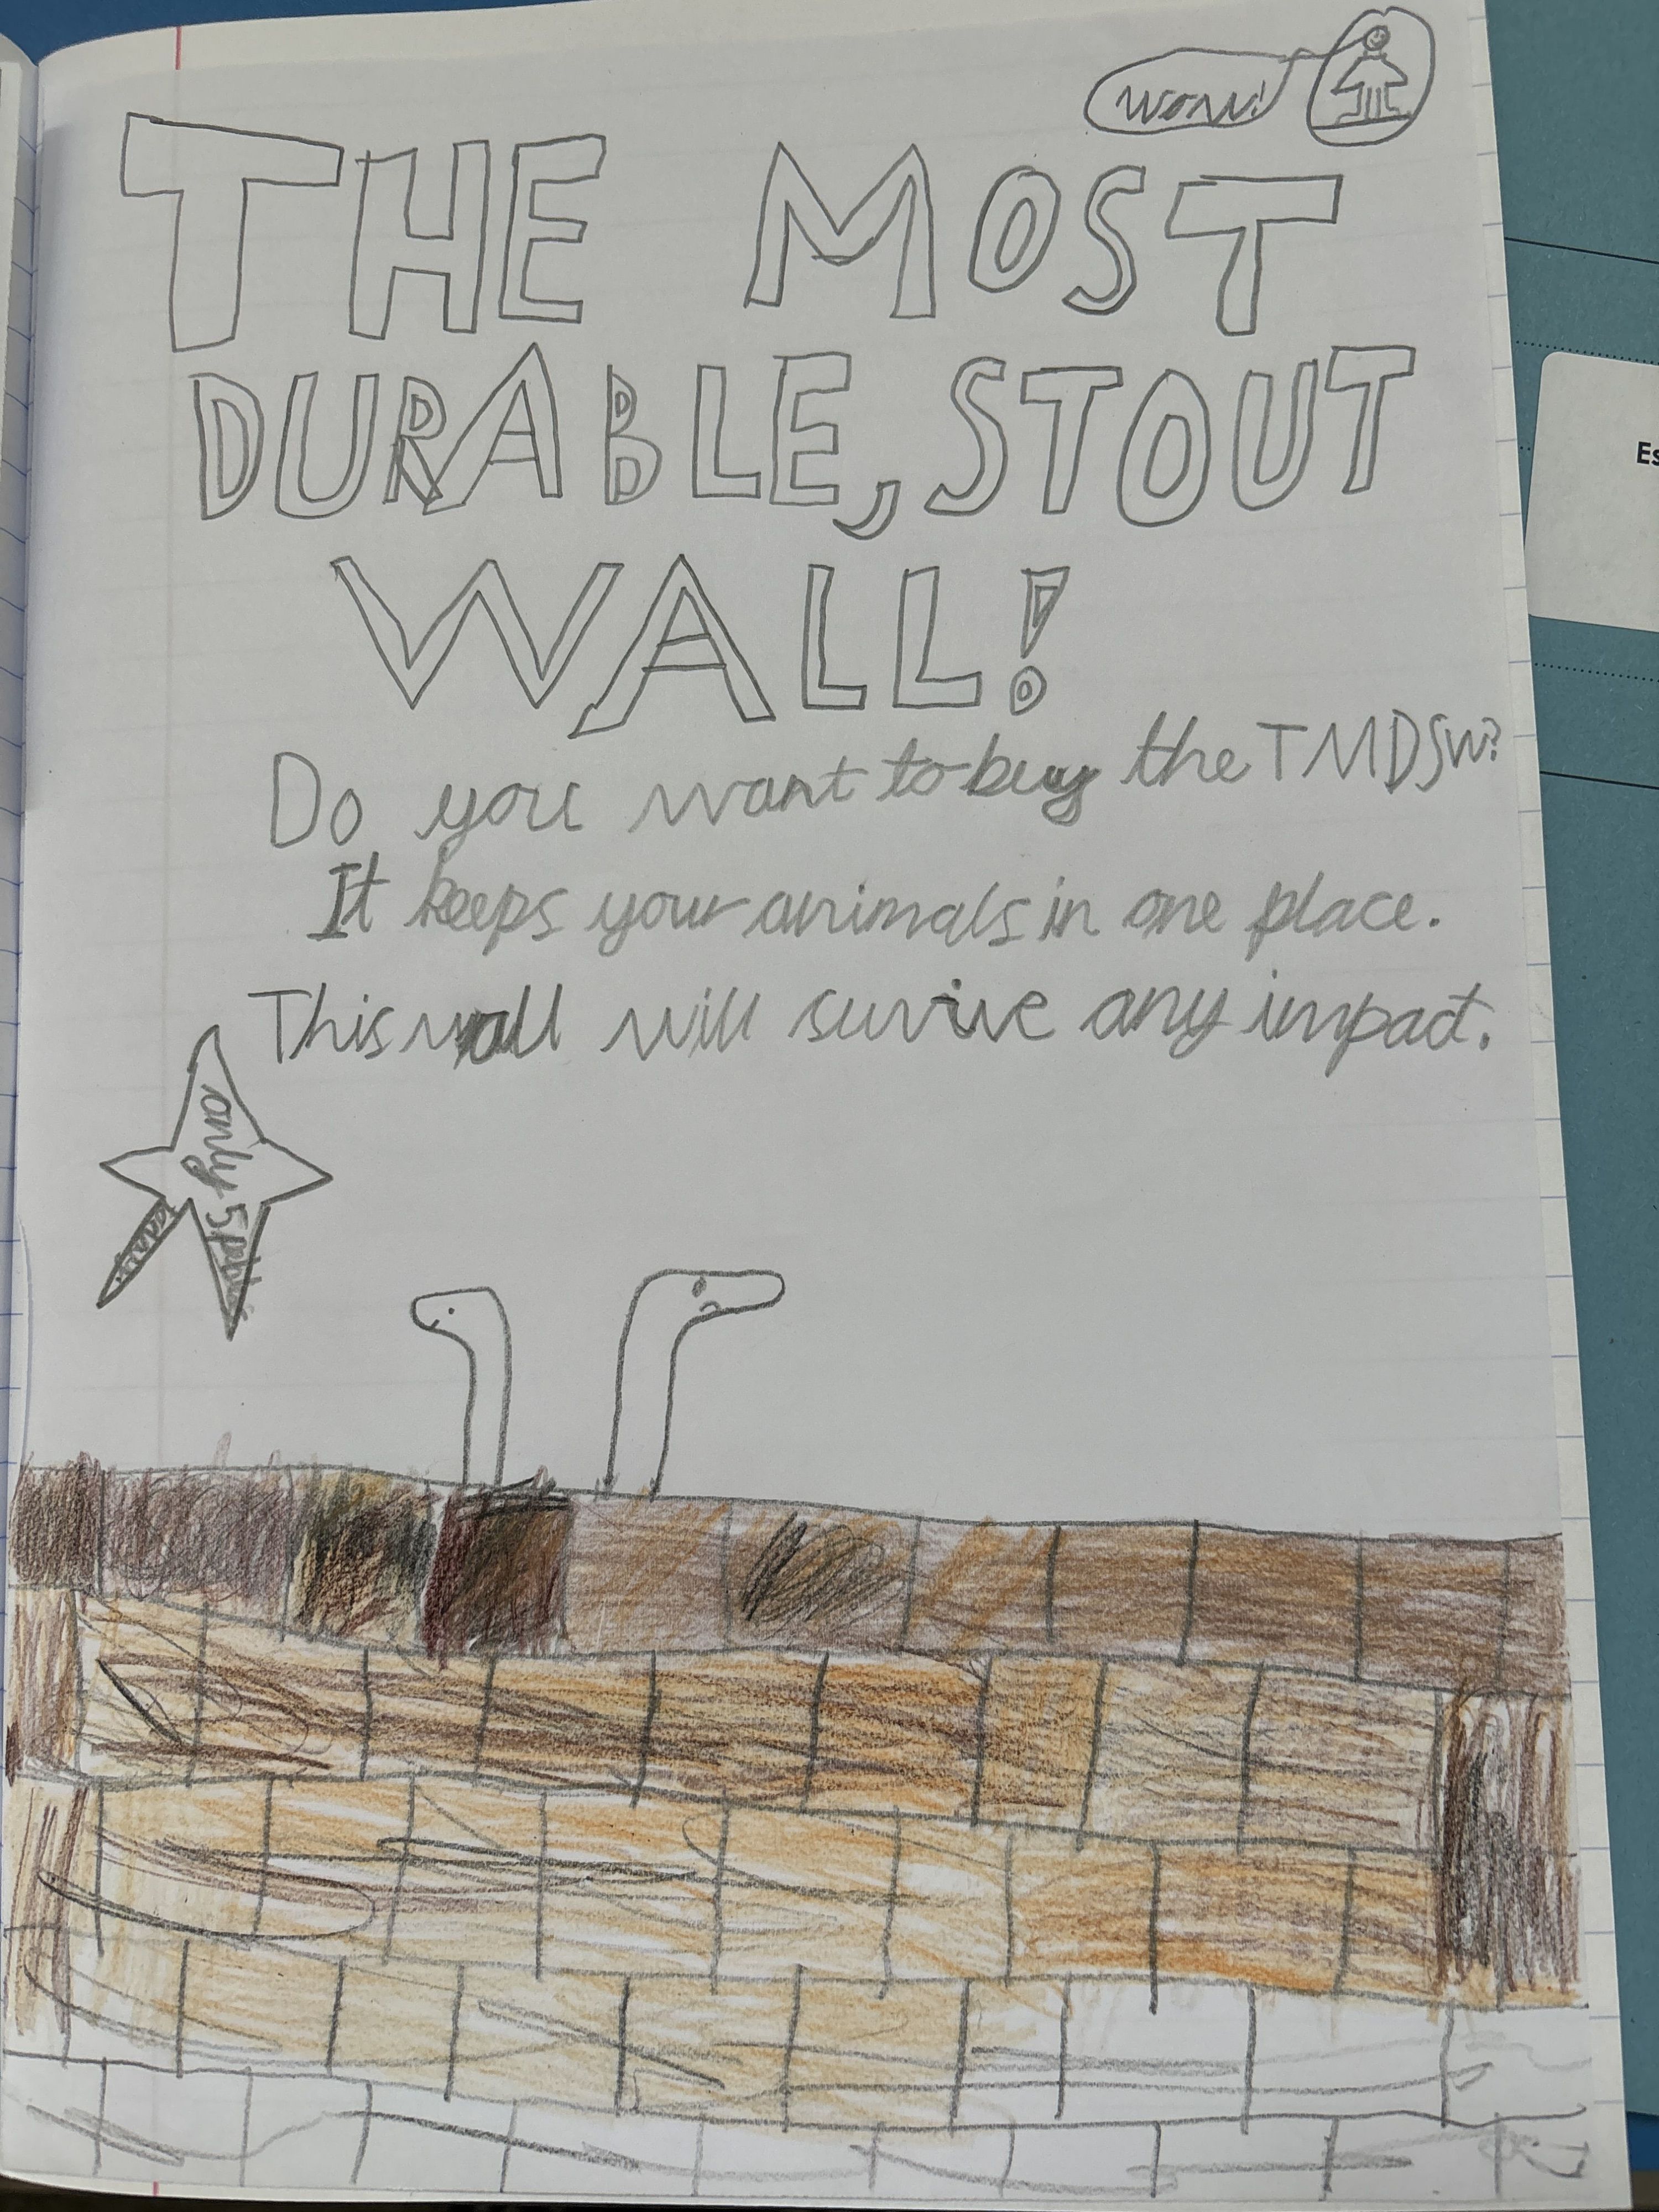 wow!
THE MOST
DURABLE, STOUT
WALL!
Do you want to buy the TMDSW?
It keeps your animals in one place.
This wall will survive any impact.
only 5
Es